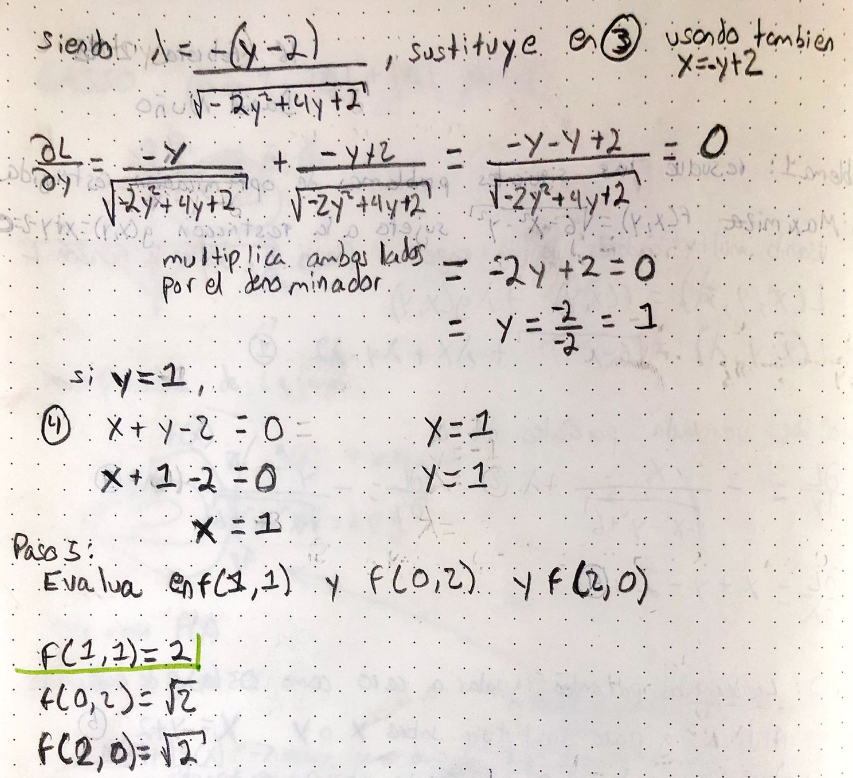 siendo λ = -(y-2) / √-2y²+4y+2 , sustituye en ③ usando tambien
x=-y+2
∂L/∂y = -y / √-2y²+4y+2 + -y+2 / √-2y²+4y+2 = -y-y+2 / √-2y²+4y+2 = 0
multiplica ambos lados
por el denominador = -2y+2=0
= y = -2/-2 = 1
si y=1,
④ x+y-2 = 0 = x=1
x+1-2=0 y=1
x=1
Paso 5:
Evalua en f(1,1) y f(0,2) y f(2,0)
f(1,1)=2
f(0,2)=√2
f(2,0)=√2